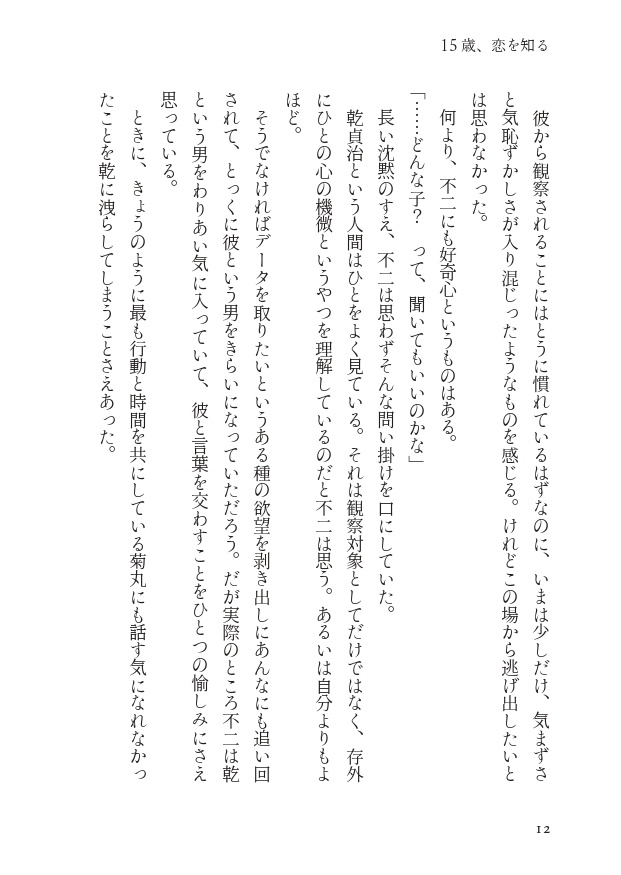 15歳、恋を知る
　彼から観察されることにはとうに慣れているはずなのに、いまは少しだけ、気まずさ
と気恥ずかしさが入り混じったようなものを感じる。けれどこの場から逃げ出したいと
は思わなかった。
　何より、不二にも好奇心というものはある。
「……どんな子？　って、聞いてもいいのかな」
　長い沈黙のすえ、不二は思わずそんな問い掛けを口にしていた。
　乾貞治という人間はひとをよく見ている。それは観察対象としてだけではなく、存外
にひとの心の機微というやつを理解しているのだと不二は思う。あるいは自分よりもよ
ほど。
　そうでなければデータを取りたいというある種の欲望を剥き出しにあんなにも追い回
されて、とっくに彼という男をきらいになっていただろう。だが実際のところ不二は乾
という男をわりあい気に入っていて、彼と言葉を交わすことをひとつの愉しみにさえ
思っている。
　ときに、きょうのように最も行動と時間を共にしている菊丸にも話す気になれなかっ
たことを乾に洩らしてしまうことさえあった。
12